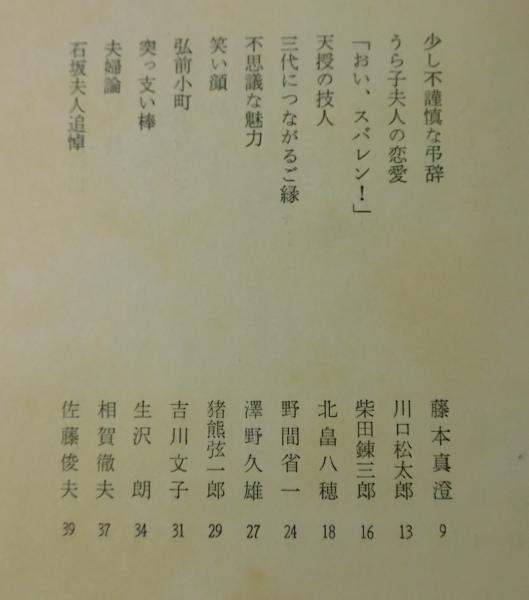 少し不謹慎な弔辞 藤本真澄 9
うら子夫人の恋愛 川口松太郎 13
「おい、スバレン！」 柴田錬三郎 16
天授の技人 北畠八穂 18
三代につながるご縁 野間省一 24
不思議な魅力 澤野久雄 27
笑い顔 猪熊弦一郎 29
弘前小町 吉川文子 31
突っ支い棒 生沢朗 34
夫婦論 相賀徹夫 37
石坂夫人追悼 佐藤俊夫 39